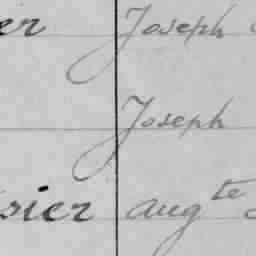 er Joseph
Joseph
sier augte